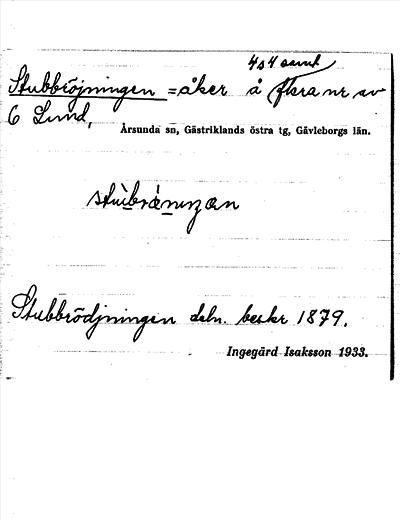 4 o 4 samt
Stubbröjningen = åker å flera nr av
6 Lund,
Årsunda sn, Gästriklands östra tg, Gävleborgs län.
Stubbrödjningen deln. beskr 1879.
Ingegärd Isaksson 1933.